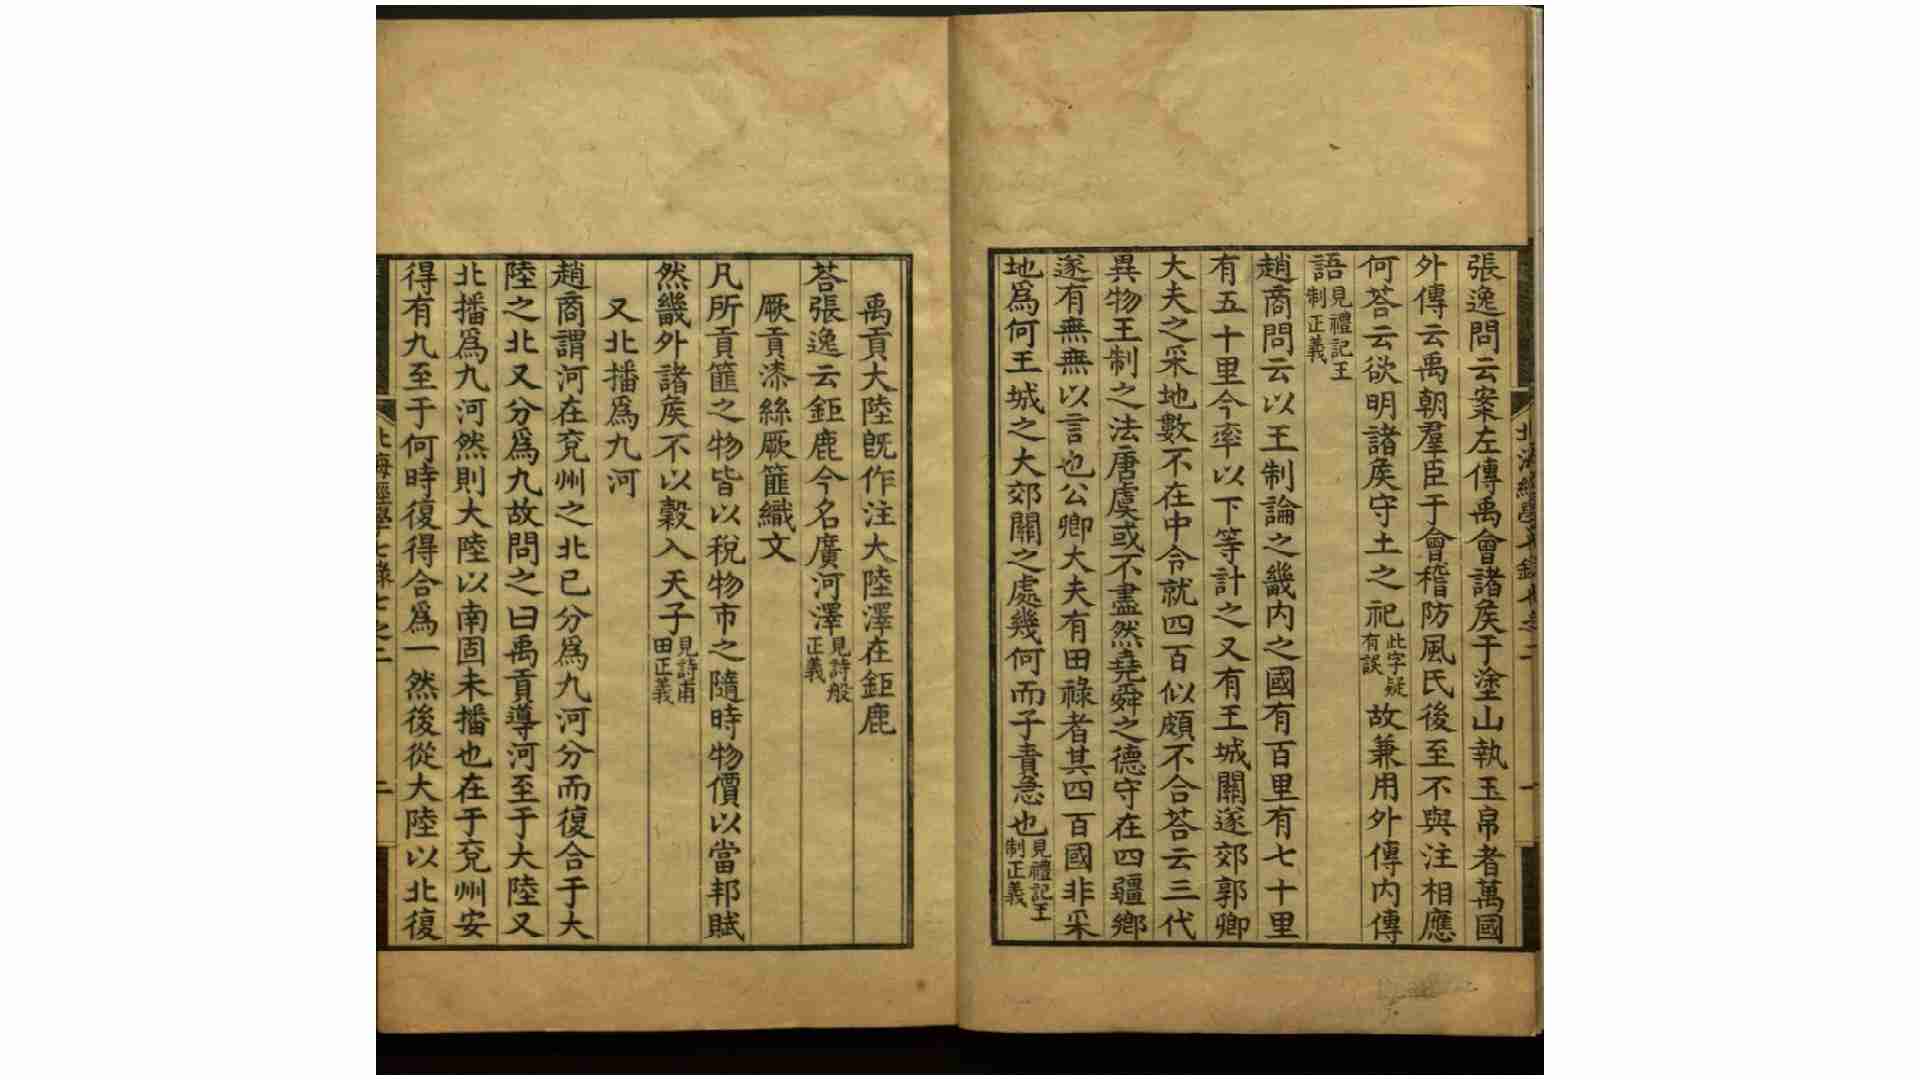 張逸問云案左傳禹會諸矦于塗山執玉帛者萬國
外傳云禹朝羣臣于會稽防風氏後至不與注相應
何荅云欲明諸矦守土之祀此字疑有誤故兼用外傳內傳
語見禮記王制正義
趙商問云以王制論之畿內之國有百里有七十里
有五十里今率以下等計之又有王城關遂郊郭卿
大夫之采地數不在中今就四百似頗不合荅云三代
異物王制之法唐虞或不盡然堯舜之德守在四疆鄉
遂有無無以言也公卿大夫有田祿者其四百國非采
地爲何王城之大郊關之處幾何而子責急也見禮記王制正義
禹貢大陸旣作注大陸澤在鉅鹿
荅張逸云鉅鹿今名廣河澤見詩般正義
厥貢漆絲厥篚織文
凡所貢篚之物皆以稅物市之隨時物價以當邦賦
然畿外諸矦不以穀入天子見詩甫田正義
又北播爲九河
趙商謂河在兗州之北已分爲九河分而復合于大
陸之北又分爲九故問之曰禹貢導河至于大陸又
北播爲九河然則大陸以南固未播也在于兗州安
得有九至于何時復得合爲一然後從大陸以北復
北海經學七錄七之二
二